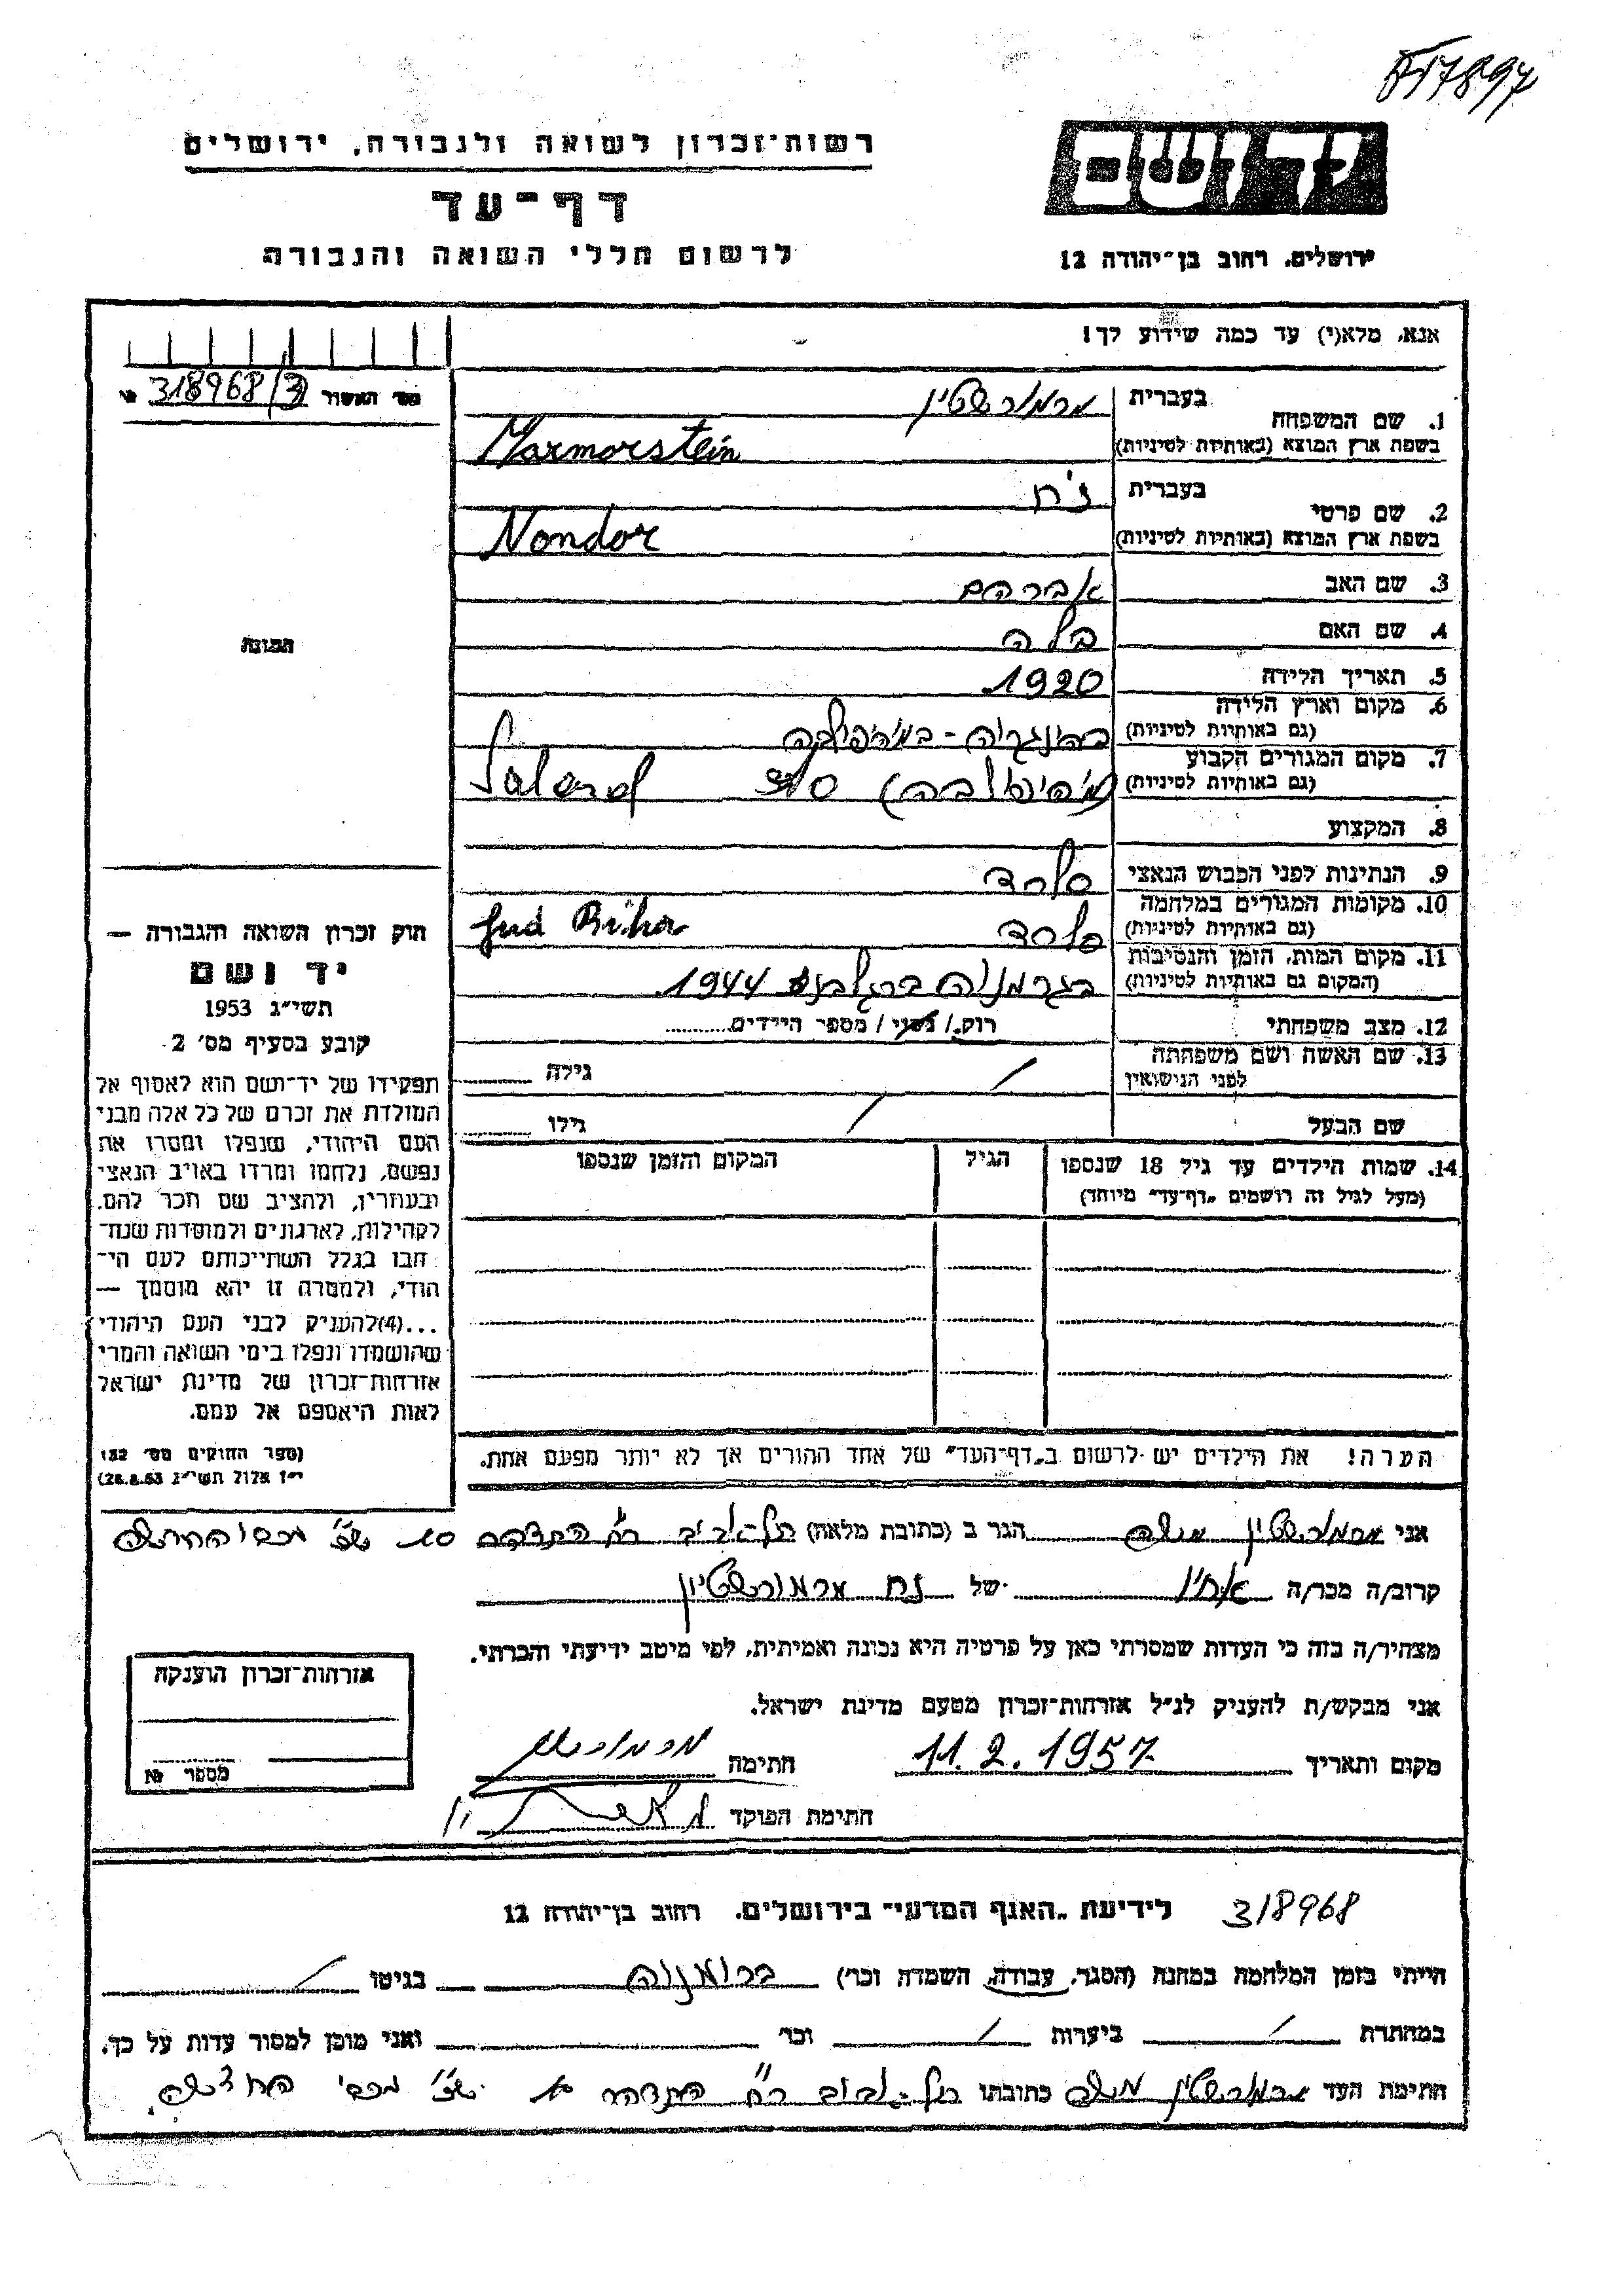 817897
רשות־זכרון לשואה ולגבורה, ירושלים
יד ושם
דף־עד
לרשום חללי השואה והגבורה
ירושלים, רחוב בן־יהודה 12
אנא, מלא(י) עד כמה שידוע לך!
מס׳ האשור № 318968/3
1. שם המשפחה
בעברית מרמורשטיין
בשפת ארץ המוצא (באותיות לטיניות) Marmorstein
2. שם פרטי
בעברית נח
בשפת ארץ המוצא (באותיות לטיניות) Nondor
3. שם האב אברהם
4. שם האם בלה
5. תאריך הלידה 1920
6. מקום וארץ הלידה
(גם באותיות לטיניות)
7. מקום המגורים הקבוע
(גם באותיות לטיניות) Salard
8. המקצוע
9. הנתינות לפני הכבוש הנאצי סלרד
10. מקומות המגורים במלחמה
(גם באותיות לטיניות) סלרד Jud Bihor
11. מקום המות, הזמן והנסיבות
(המקום גם באותיות לטיניות) בגרמניה 1944
12. מצב משפחתי רוק / נשוי / מספר הילדים
13. שם האשה ושם משפחתה
לפני הנישואין / גילה
שם הבעל / גילו
14. שמות הילדים עד גיל 18 שנספו הגיל המקום והזמן שנספו
(מעל לגיל זה רושמים „דף־עד״ מיוחד)
הערה! את הילדים יש לרשום ב„דף־העד״ של אחד ההורים אך לא יותר מפעם אחת.
התמונה
חוק זכרון השואה והגבורה —
יד ושם
תשי״ג 1953
קובע בסעיף מס׳ 2
תפקידו של יד־ושם הוא לאסוף אל
המולדת את זכרם של כל אלה מבני
העם היהודי, שנפלו ומסרו את
נפשם, נלחמו ומרדו באויב הנאצי
ובעוזריו, ולהציב שם וזכר להם,
לקהילות, לארגונים ולמוסדות שנח־
רבו בגלל השתייכותם לעם הי־
הודי, ולמטרה זו יהא מוסמך —
...(4)להעניק לבני העם היהודי
שהושמדו ונפלו בימי השואה והמרי
אזרחות־זכרון של מדינת ישראל
לאות היאספם אל עמם.
(ספר החוקים מס׳ 132
י״ז אלול תשי״ג 28.8.53)
אני מרמורשטיין משה הגר ב (כתובת מלאה) תל־אביב רח׳
קרוב/ה מכר/ה אחיו של נח מרמורשטיין
מצהיר/ה בזה כי העדות שמסרתי כאן על פרטיה היא נכונה ואמיתית, לפי מיטב ידיעתי והכרתי.
אני מבקש/ת להעניק לנ״ל אזרחות־זכרון מטעם מדינת ישראל.
מקום ותאריך 11.2.1957 חתימה
חתימת הפוקד
אזרחות־זכרון הוענקה
מספר №
318968 לידיעת „האגף המדעי״ בירושלים. רחוב בן־יהודה 12
הייתי בזמן המלחמה במחנה (הסגר, עבודה, השמדה וכו׳) ברומניה בגיטו /
במחתרת / ביערות / וכו׳ ואני מוכן למסור עדות על כך.
חתימת העד מרמורשטיין משה כתובתו תל־אביב רח׳